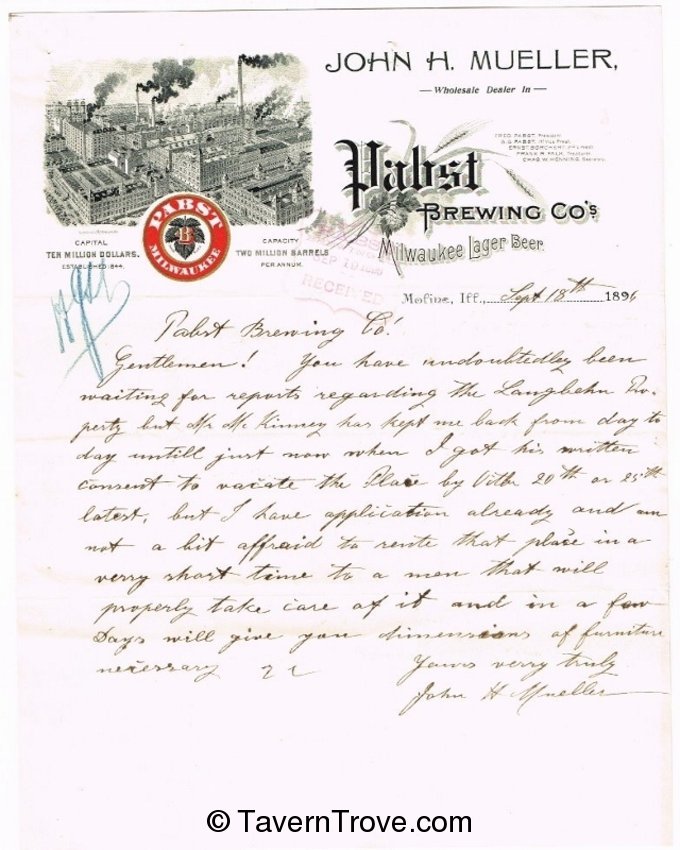 JOHN H. MUELLER,
— Wholesale Dealer In —
FRED. PABST, President.
CHAS. W. HENNING, Secretary.
Pabst
BREWING CO'S
Milwaukee Lager Beer.
PABST
B
MILWAUKEE
CAPITAL
TEN MILLION DOLLARS.
ESTABLISHED 1844.
CAPACITY
TWO MILLION BARRELS
PER ANNUM.
RECEIVED
Moline, Ill., Sept 18th 1896
Pabst Brewing Co!
Gentlemen! You have undoubtedley been
waiting for reports regarding the Langbehn Pro-
perty but Mr McKinney has kept me back from day to
day untill just now when I got his written
consent to vacate the Place by Octbr 20th or 25th
latest, but I have application already and am
not a bit affraid to rente that place in a
verry short time to a men that will
properly take care of it and in a few
Days will give you dimensions of furniture
necessary
Yours verry truly
John H Mueller
© TavernTrove.com